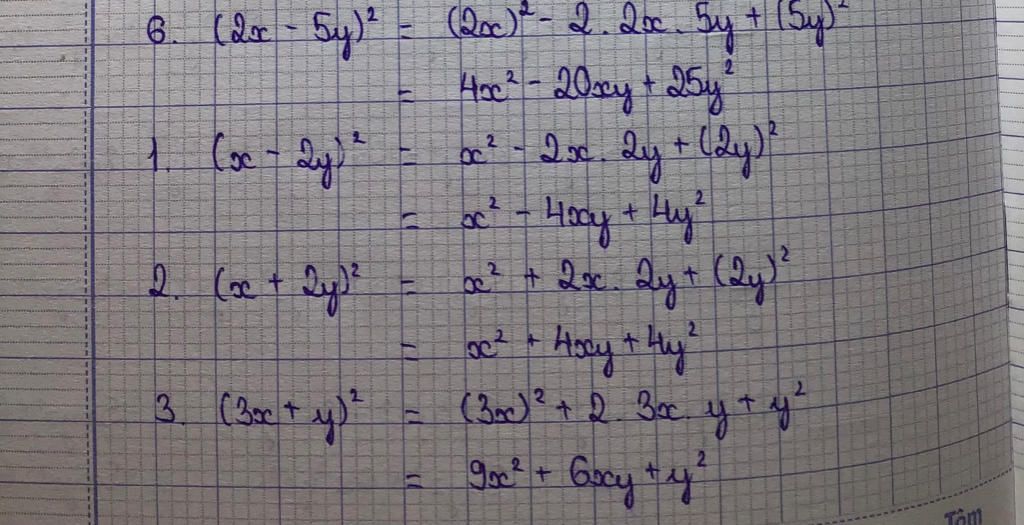 6. (2x - 5y)² = (2x)² - 2. 2x. 5y + (5y)²
= 4x² - 20xy + 25y²
1. (x - 2y)² = x² - 2x. 2y + (2y)²
= x² - 4xy + 4y²
2. (x + 2y)² = x² + 2x. 2y + (2y)²
= x² + 4xy + 4y²
3. (3x + y)² = (3x)² + 2. 3x. y + y²
= 9x² + 6xy + y²
Tâm